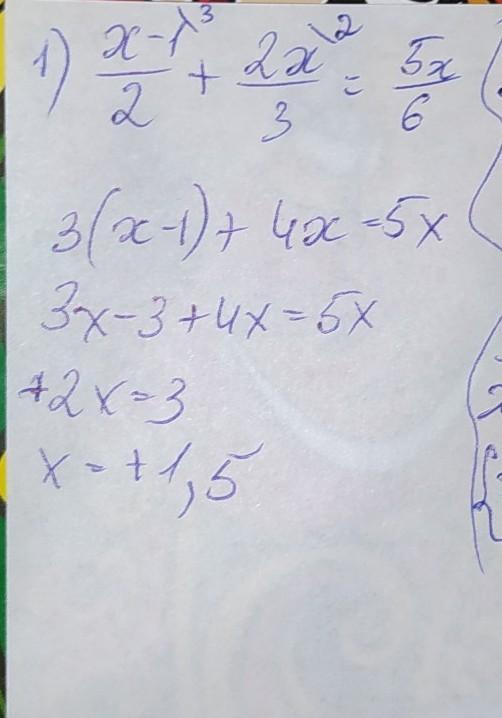 1) (x-1)/2 \3 + 2x/3 \2 = 5x/6
3(x-1)+ 4x=5x
3x-3+4x=5x
+2x=3
x=+1,5